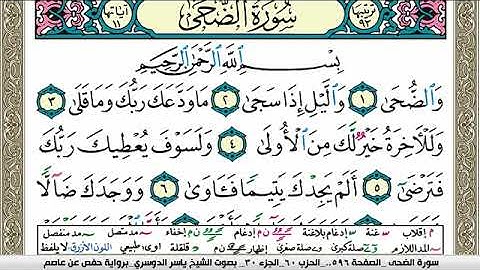 ترتيبها ٩٣ سُورَةُ الضُّحَىٰ آياتها ١١
بِسْمِ اللَّهِ الرَّحْمَٰنِ الرَّحِيمِ
وَالضُّحَىٰ ١ وَاللَّيْلِ إِذَا سَجَىٰ ٢ مَا وَدَّعَكَ رَبُّكَ وَمَا قَلَىٰ ٣
وَلَلْآخِرَةُ خَيْرٌ لَّكَ مِنَ الْأُولَىٰ ٤ وَلَسَوْفَ يُعْطِيكَ رَبُّكَ
فَتَرْضَىٰ ٥ أَلَمْ يَجِدْكَ يَتِيمًا فَـَٔاوَىٰ ٦ وَوَجَدَكَ ضَآلًّا
م إقلاب س غنة س إدغام بلاغنة ن م إدغام ن م إخفاء مد متصل مد منفصل
المد اللازم صلة كبرى وصلة صغرى إظهار ن م قلقلة اوى طبيعي اللون الأزرق لا يلفظ
سورة الضحى _الصفحة ٥٩٦_ الحزب ٦٠_الجزء ٣٠_ بصوت الشيخ ياسر الدوسري_برواية حفص عن عاصم